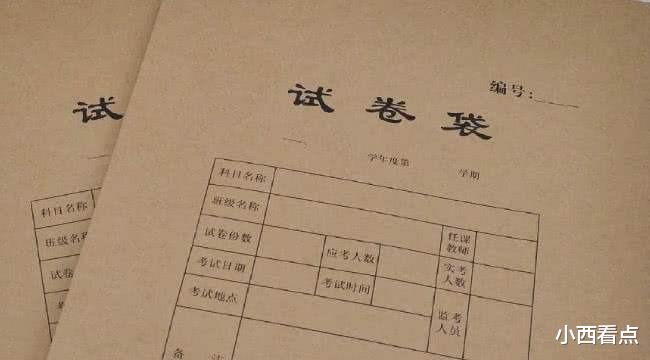 编号:
试卷袋
学年度第 学期
科目名称
班级名称 任课教师
试卷份数 应考人数 实考人数
考试日期 考试时间
考试地点 监考人员
备 注
试
科目名称
班级名称
试卷
小西看点